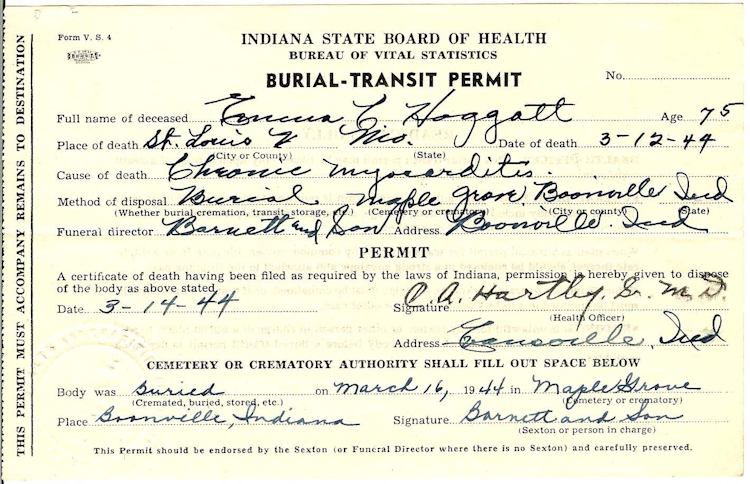 Form V. S. 4
INDIANA STATE BOARD OF HEALTH
BUREAU OF VITAL STATISTICS
BURIAL-TRANSIT PERMIT
No.
Full name of deceased Emma C. Hoggatt Age 75
Place of death St. Louis Mo. Date of death 3-12-44
(City or County) (State)
Cause of death Chronic myocarditis.
Method of disposal Burial Maple Grove Boonville Ind
(Whether burial cremation, transit, storage, etc.) (Cemetery or crematory) (City or county) (State)
Funeral director Barnett and Son Address Boonville, Ind
PERMIT
A certificate of death having been filed as required by the laws of Indiana, permission is hereby given to dispose
of the body as above stated.
Date 3-14-44 Signature C. A. Hartley, M.D.
(Health Officer)
Address Ind
CEMETERY OR CREMATORY AUTHORITY SHALL FILL OUT SPACE BELOW
Body was Buried on March 16, 1944 in Maple Grove
(Cremated, buried, stored, etc.) (Cemetery or crematory)
Place Boonville, Indiana Signature Barnett and Son
(Sexton or person in charge)
This Permit should be endorsed by the Sexton (or Funeral Director where there is no Sexton) and carefully preserved.
THIS PERMIT MUST ACCOMPANY REMAINS TO DESTINATION